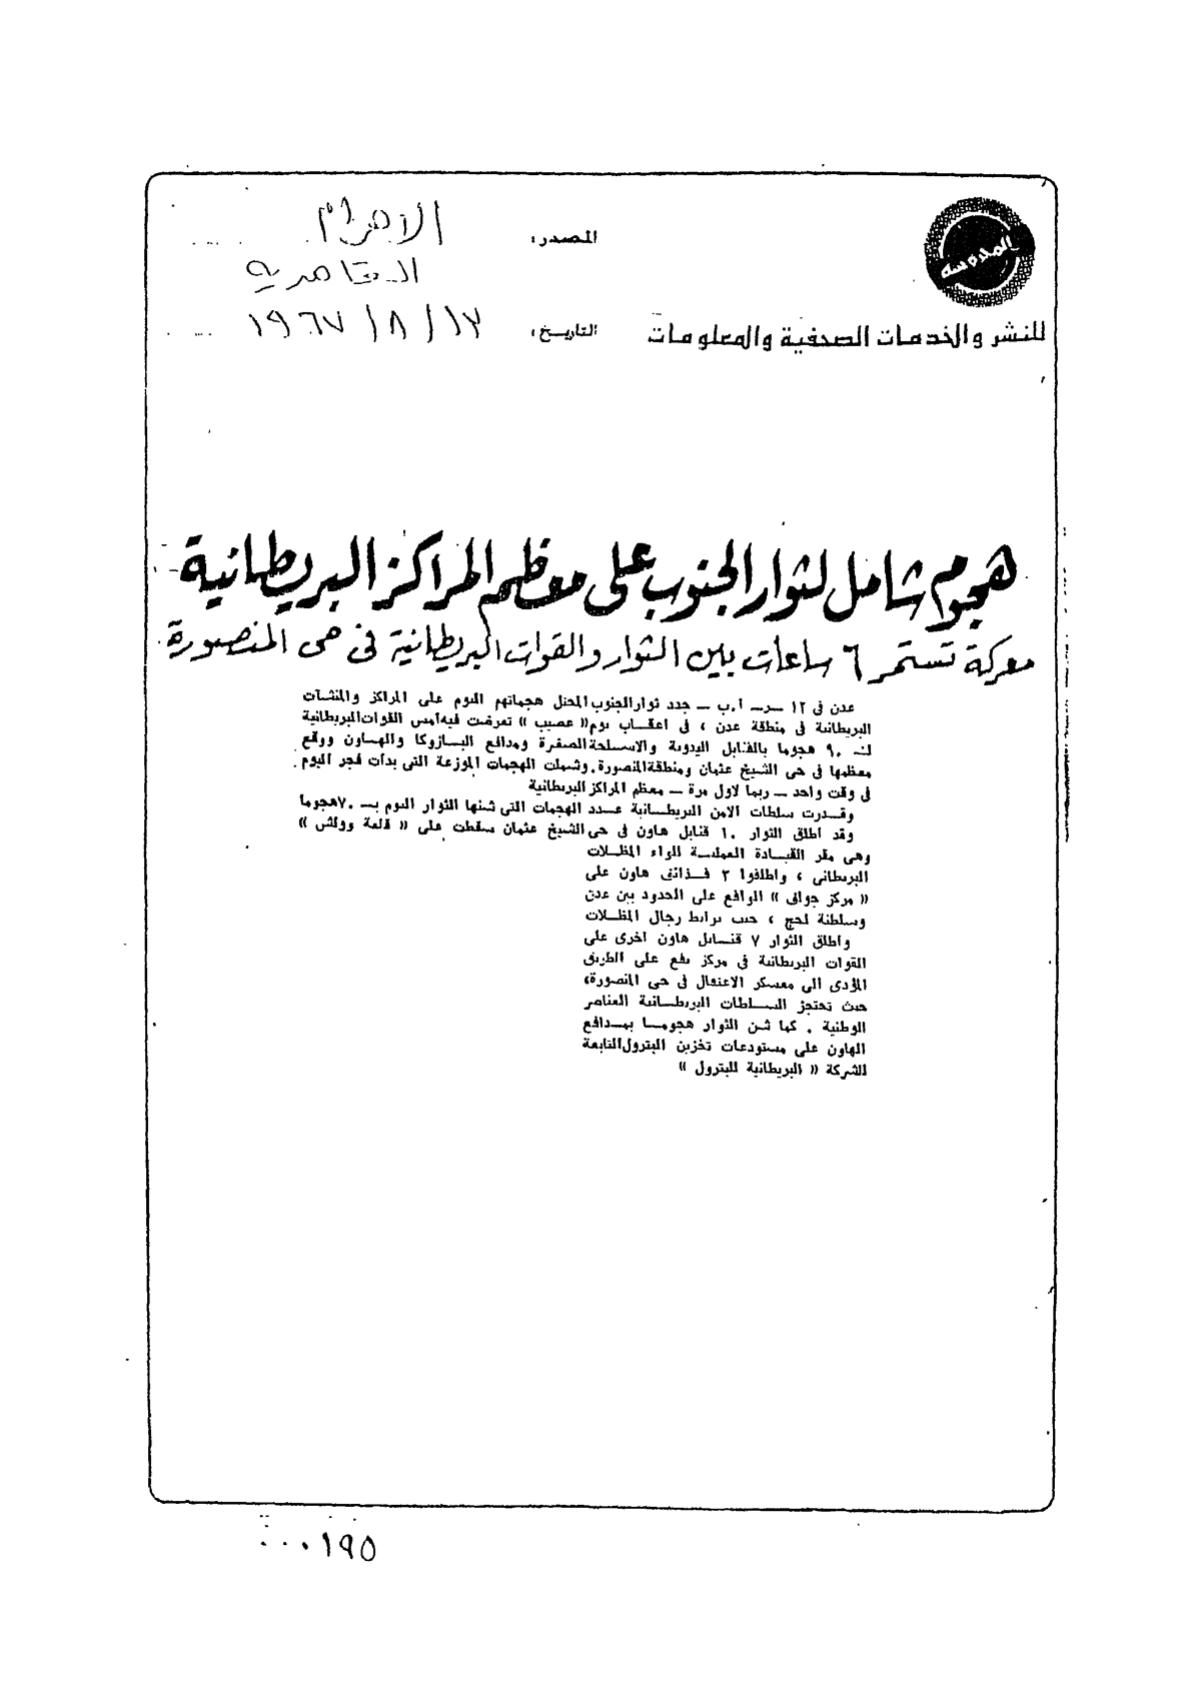 المصدر : الاهرام
القاهرية
التاريخ : ١٣ / ٨ / ١٩٦٧
المدوسه
للنشر والخدمات الصحفية والمعلومات
هجوم شامل لثوار الجنوب على معظم المراكز البريطانية
معركة تستمر ٦ ساعات بين الثوار والقوات البريطانية فى حى المنصورة
عدن فى ١٢ ــ ا.ب ــ جدد ثوار الجنوب المحتل هجماتهم اليوم على المراكز والمنشآت
البريطانية فى منطقة عدن ، فى اعقاب يوم « عصيب » تعرضت فيه امس القوات البريطانية
لـ ٩٠ هجوما بالقنابل اليدوية والاسلحة الصغيرة ومدافع البازوكا والهاون ووقع
معظمها فى حى الشيخ عثمان ومنطقة المنصورة . وشملت الهجمات الموزعة التى بدأت فجر اليوم
فى وقت واحد ــ ربما لاول مرة ــ معظم المراكز البريطانية
وقدرت سلطات الامن البريطانية عدد الهجمات التى شنها الثوار اليوم بـ ٧٠ هجوما
وقد اطلق الثوار ١٠ قنابل هاون فى حى الشيخ عثمان سقطت على « قلعة وولش »
وهى مقر القيادة العملية للواء المظلات
البريطانى ، واطلقوا ٣ قذائف هاون على
« مركز جولى » الواقع على الحدود بين عدن
وسلطنة لحج ، حيث يرابط رجال المظلات
واطلق الثوار ٧ قنابل هاون اخرى على
القوات البريطانية فى مركز يقع على الطريق
المؤدى الى معسكر الاعتقال فى حى المنصورة،
حيث تحتجز السلطات البريطانية العناصر
الوطنية . كما شن الثوار هجوما بمدافع
الهاون على مستودعات تخزين البترول التابعة
للشركة « البريطانية للبترول »
٠٠٠١٩٥